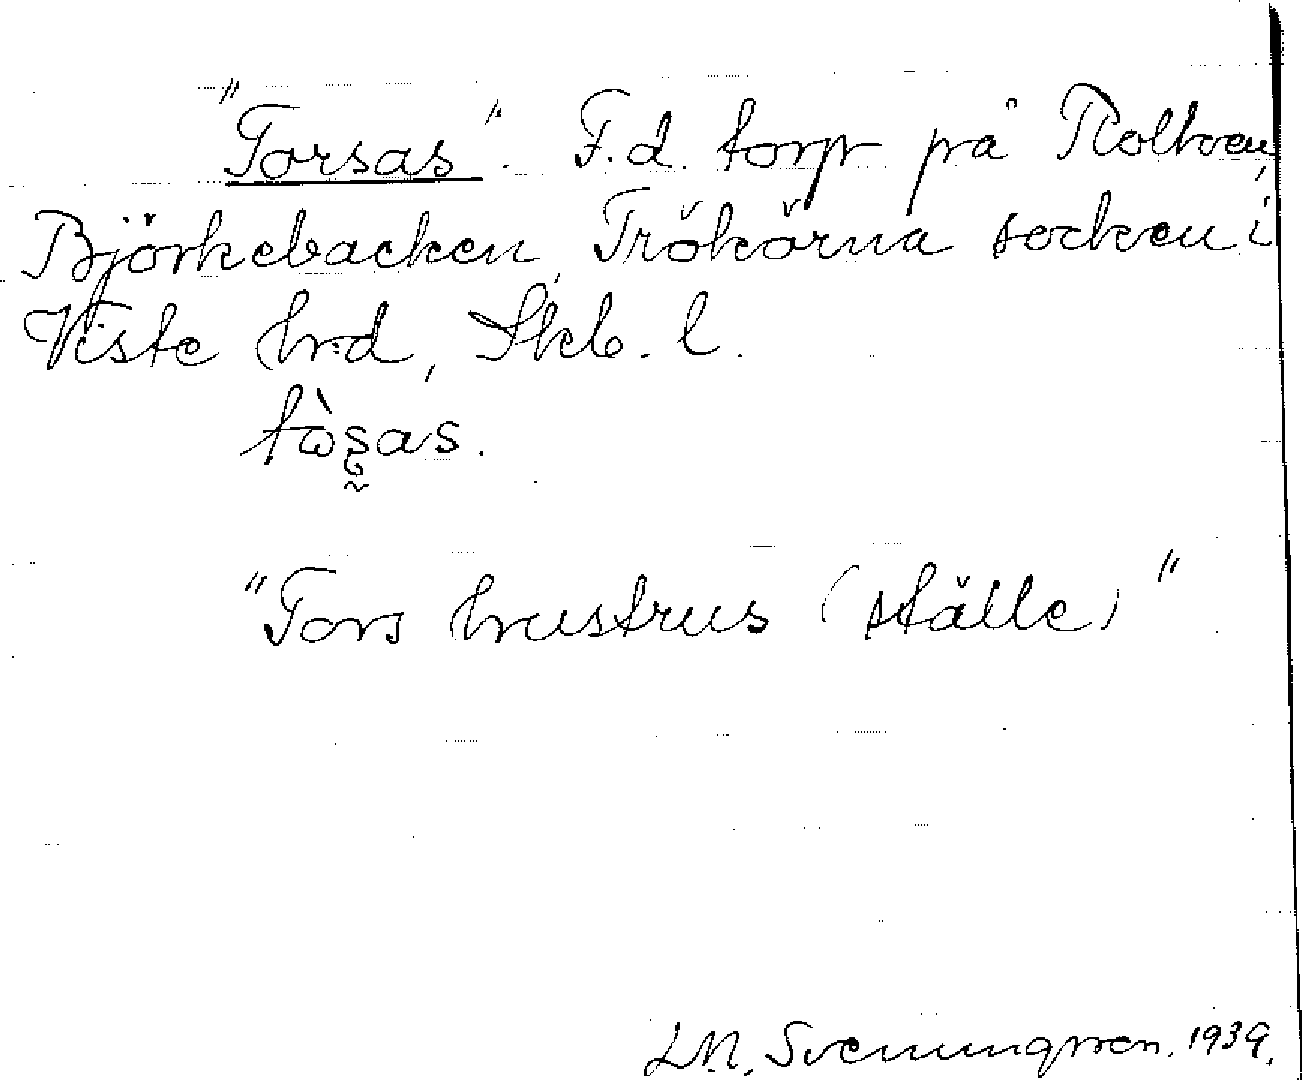 "Torsas". F.d. torp på Rolken,
Björkebacken, Trökörna socken i
Viste hrd, Skb. l.
tὼʂas.
"Tors hustrus (ställe)"
L.M. Svenungsson. 1939.